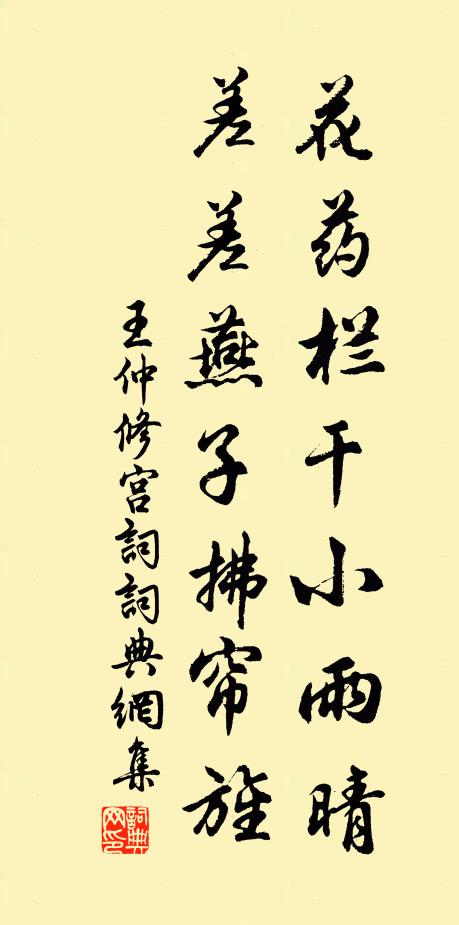 花药栏干小雨晴
差差燕子拂帘旌
王仲修宫詞詞典網集
詞典網印